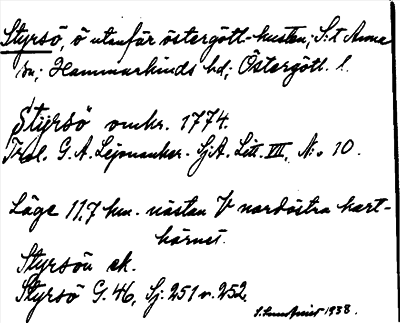 Styrsö, ö utanför östergötl. kusten; S:t Anna
sn; Hammarkinds hd; Östergötl. l.
Styrsö omkr. 1774.
Trol. G. A. Lejonanker. SjA. Litt. VII, No 10.
Läge 11,7 km. nästan V nordöstra kart-
hörnet.
Styrsön ek.
Styrsö G. 46, Sj: 251 o. 252.
1938.